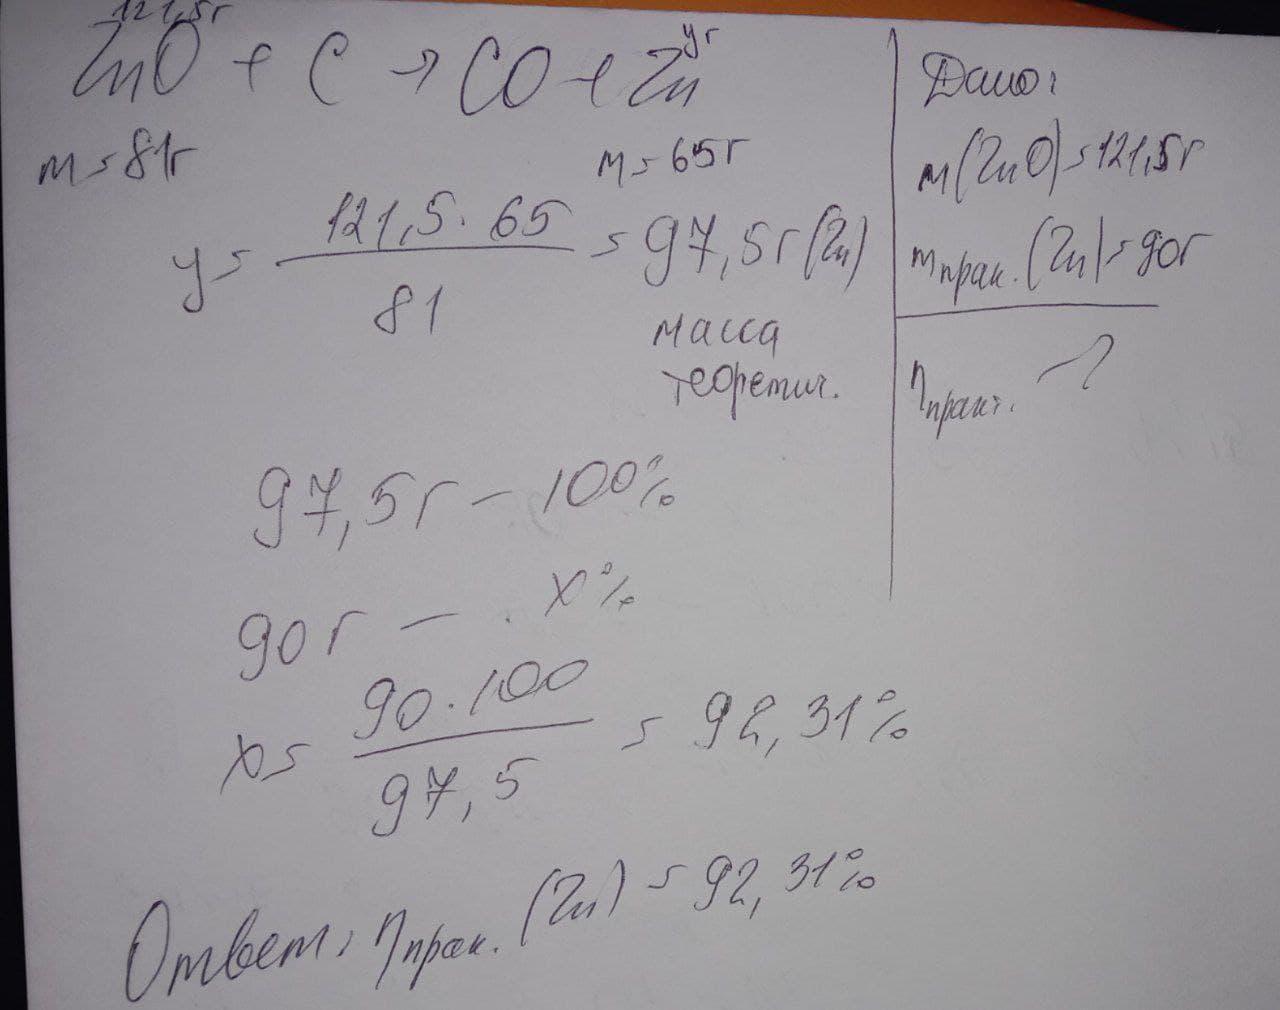 121,5г уг
ZnO + C → CO + Zn
m = 81г M = 65г
y = 121,5 · 65 / 81 = 97,5г (Zn)
масса
теоретич.
97,5г – 100%
90г – x%
x = 90 · 100 / 97,5 = 92,31%
Ответ: η прак. (Zn) = 92,31%
Дано:
m(ZnO) = 121,5г
m прак. (Zn) = 90г
η практ. – ?